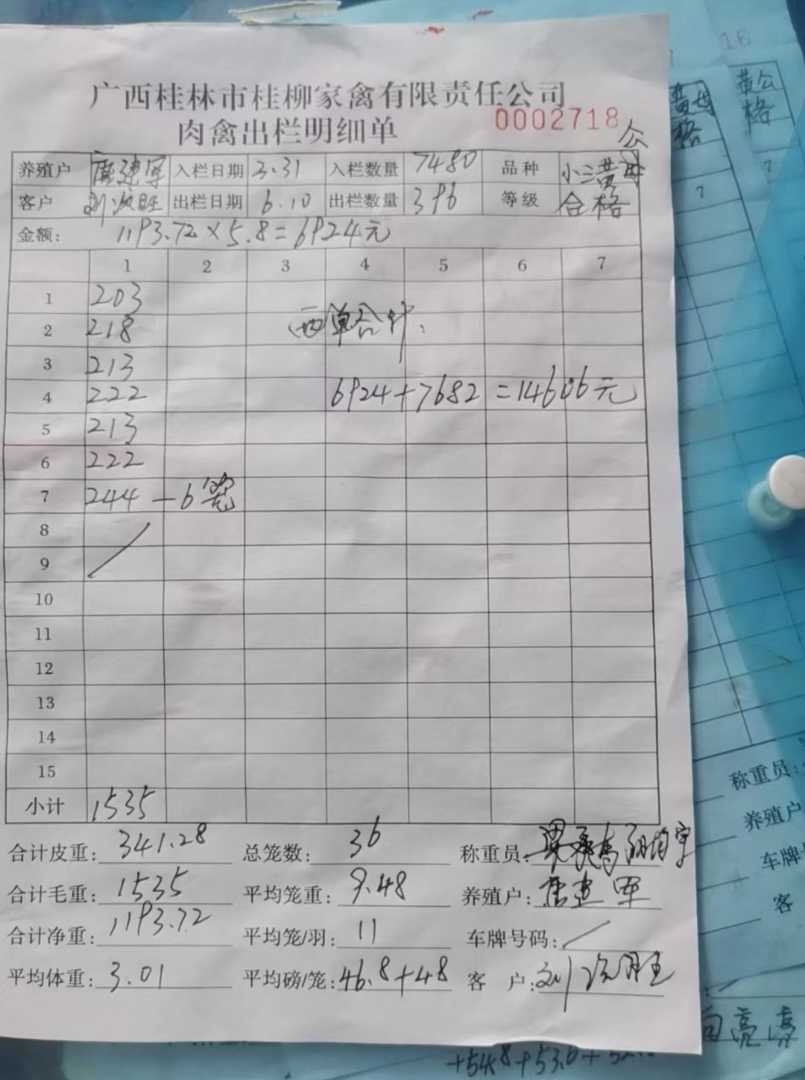 18
黄公
格
格
广西桂林市桂柳家禽有限责任公司
肉禽出栏明细单
0002718
公
养殖户 唐建军 入栏日期 3.31 入栏数量 7480 品种 小三黄母
客户 刘次旺 出栏日期 6.10 出栏数量 396 等级 合格
金额: 1193.72×5.8=6924元
1 2 3 4 5 6 7
1 203
2 218 两单合计:
3 213
4 222 6924+7682=14606元
5 213
6 222
7 244 —6笼
8
9
10
11
12
13
14
15
小计 1535
合计皮重: 341.28 总笼数: 36 称重员:
合计毛重: 1535 平均笼重: 9.48 养殖户: 唐建军
合计净重: 1193.72 平均笼/羽: 11 车牌号码:
平均体重: 3.01 平均磅/笼: 46.8+48 客 户: 刘次旺
称重员:
养殖户
车牌号
客
+54.8+53.6+